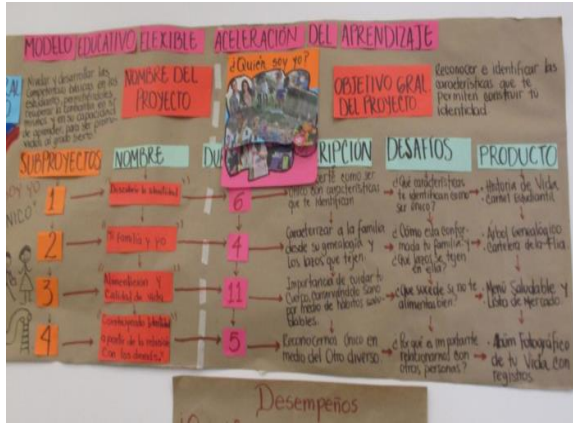 MODELO EDUCATIVO FLEXIBLE ACELERACIÓN DEL APRENDIZAJE
Nivelar y desarrollar las
competencias básicas en los
recuperar la confianza en sí
mismos y en su capacidad
de aprender, para ser promo-
vidos al grado sexto.
NOMBRE DEL
PROYECTO
¿Quién soy yo?
OBJETIVO GRAL.
DEL PROYECTO
Reconocer e identificar las
características que te
permiten construir tu
identidad.
SUBPROYECTOS
NOMBRE
DU
RIPCION
DESAFÍOS
PRODUCTO
1
Descubrir la identidad
6
erte como ser
único con características
que te identifican
¿Qué características
te identifican como
ser único?
Historia de Vida
Carnet Estudiantil
2
"Mi familia y yo"
4
Caracterizar a la familia
desde su genealogía y
los lazos que tejen.
¿Cómo esta confor-
mada tu familia y
¿Qué lazos se tejen
en ella?
Arbol Genealógico
Cartelera de la Flia
3
Alimentación y
Calidad de vida
11
Importancia de cuidar tu
Cuerpo, conservándolo Sano
por medio de hábitos salu-
dables.
¿Qué sucede si no te
alimentas bien?
Menú Saludable y
Lista de Mercado.
4
Construyendo Identidad
a partir de la relación
con los demás
5
Reconocernos Único en
medio del Otro diverso.
¿Por qué es importante
relacionarnos con
otros personas?
Album Fotográfico
de tu Vida con
registros.
NICO"
Desempeños